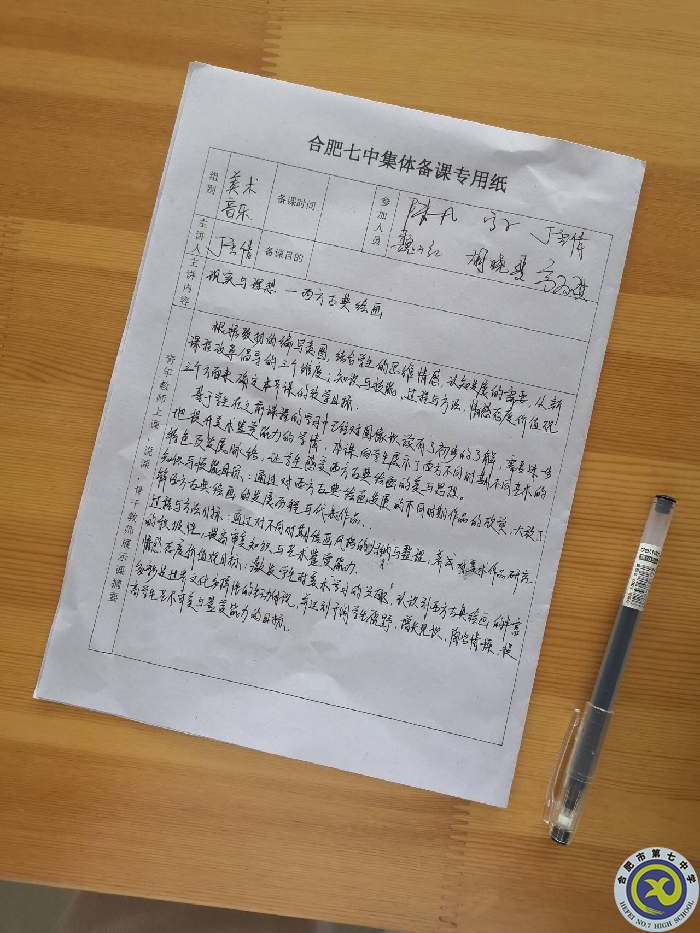 合肥七中集体备课专用纸
组别 美术 音乐 备课时间 参加人员
主讲人 备课目的
主讲内容 现实与理想 — 西方古典绘画
青年教师上课、说课、骨干教师展示课摘要
根据教材的编写意图，结合学生的思维情感，认知发展的需要，从新
课程改革倡导的三个维度：知识与技能、过程与方法、情感态度价值观
三个方面来确定本节课的教学目标。
基于学生在之前课程的学习中已经对图像识读有了初步的了解，需要逐步
地提升美术鉴赏能力的学情，本课向学生展示了西方不同时期不同艺术的
特色及发展脉络，让学生感受西方古典绘画的美与思想。
知识与技能目标：通过对西方古典绘画发展的不同时期作品的欣赏，大致了
解西方古典绘画的发展历程与代表作品。
过程与方法目标：通过对不同时期绘画风格的归纳与整理，美术作品研究
的积极性，提高审美知识与美术鉴赏能力。
情感态度价值观目标：激发学生对美术学习的兴趣，认识到西方古典绘画的丰富
多彩是世界文化多样性的生动体现，开阔视野，增长见识，陶冶情操，提
高学生艺术审美与鉴赏能力的目标。
合肥市第七中学
HEFEI NO.7 HIGH SCHOOL